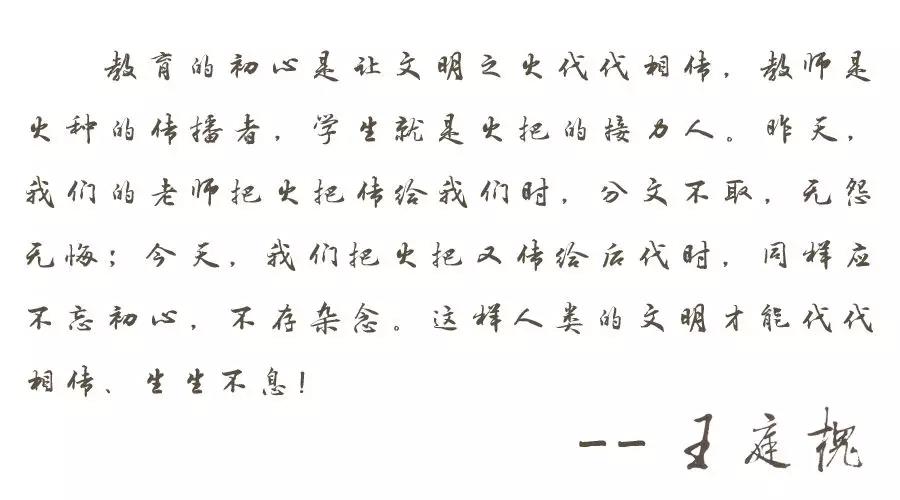 教育的初心是让文明之火代代相传，教师是
火种的传播者，学生就是火把的接力人。昨天，
我们的老师把火把传给我们时，分文不取，无怨
无悔；今天，我们把火把又传给后代时，同样应
不忘初心，不存杂念。这样人类的文明才能代代
相传、生生不息！
-- 王庭槐